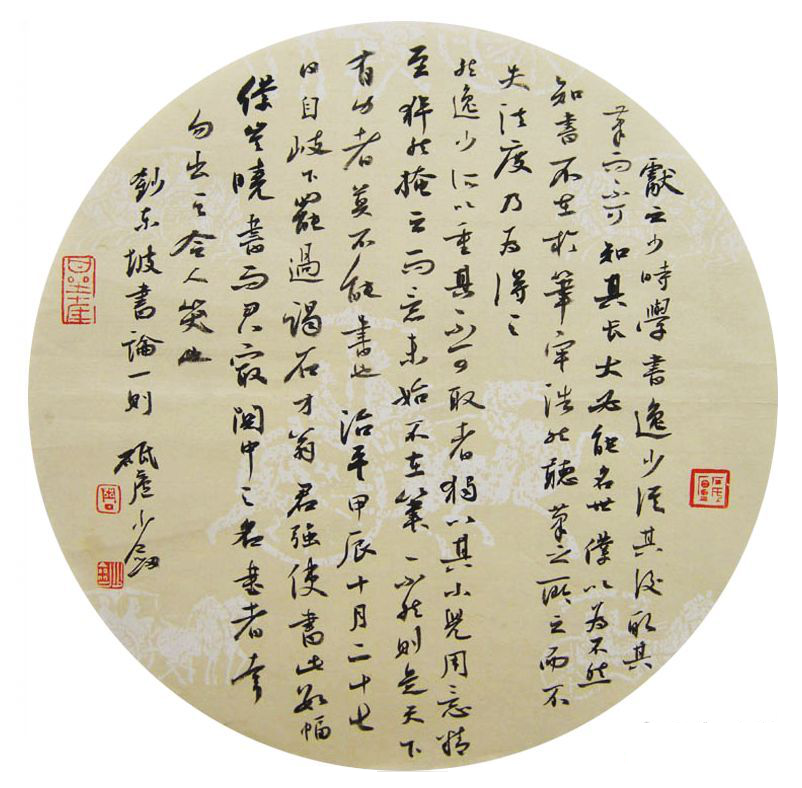 獻之少時學書逸少從其後取其
筆而不可知其長大必能名世僕以為不然
知書不在於筆牢浩然聽筆之所之而不
失法度乃為得之
然逸少所以重其不可取者獨以其小兒用意精
至猝然掩之而意未始不在筆不然則是天下
有力者莫不能書也治平甲辰十月二十七
日自岐下罷過謁石才翁君強使書此數幅
僕豈曉書而君最關中之名書者幸
勿出之令人笑也
鈔東坡書論一則 砥廬小劍